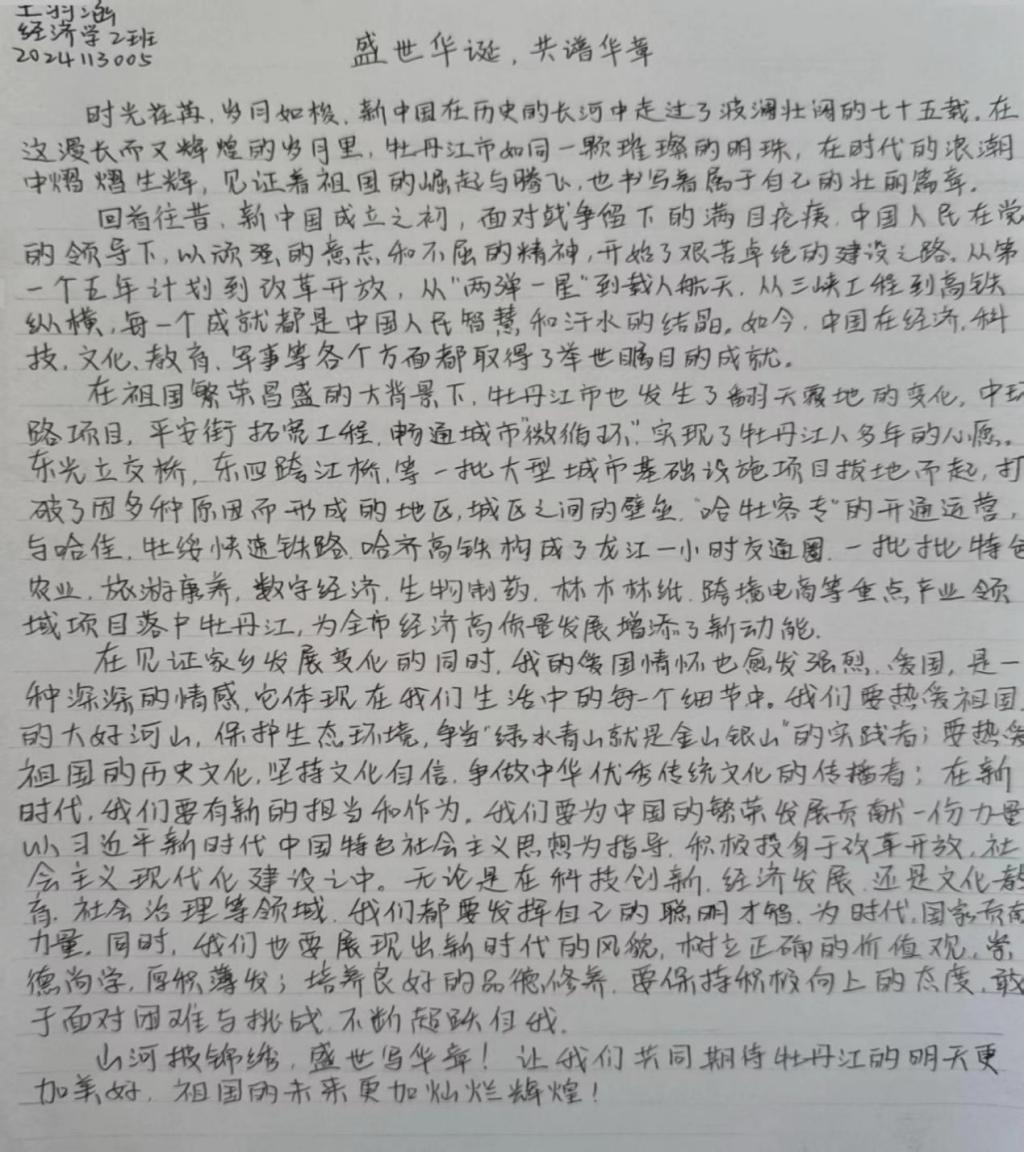 经济学2班
2024113005
盛世华诞，共谱华章
时光荏苒，岁月如梭，新中国在历史的长河中走过了波澜壮阔的七十五载。在
这漫长而又辉煌的岁月里，牡丹江市如同一颗璀璨的明珠，在时代的浪潮
中熠熠生辉，见证着祖国的崛起与腾飞，也书写着属于自己的壮丽篇章。
回首往昔，新中国成立之初，面对战争留下的满目疮痍，中国人民在党
的领导下，以顽强的意志和不屈的精神，开始了艰苦卓绝的建设之路。从第
一个五年计划到改革开放，从“两弹一星”到载人航天，从三峡工程到高铁
纵横，每一个成就都是中国人民智慧和汗水的结晶。如今，中国在经济、科
技、文化、教育、军事等各个方面都取得了举世瞩目的成就。
在祖国繁荣昌盛的大背景下，牡丹江市也发生了翻天覆地的变化，中环
路项目，平安街拓宽工程，畅通城市“微循环”，实现了牡丹江人多年的心愿。
东光立交桥，东四跨江桥，等一批大型城市基础设施项目拔地而起，打
破了因多种原因而形成的地区，城区之间的壁垒，“哈牡客专”的开通运营，
与哈佳，牡绥快速铁路，哈齐高铁构成了龙江一小时交通圈，一批批特色
农业，旅游康养，数字经济，生物制药，林木林纸，跨境电商等重点产业领
域项目落户牡丹江，为全市经济高质量发展增添了新动能。
在见证家乡发展变化的同时，我的爱国情怀也愈发强烈，爱国，是一
种深深的情感，它体现在我们生活中的每一个细节中。我们要热爱祖国
的大好河山，保护生态环境，争当“绿水青山就是金山银山”的实践者；要热爱
祖国的历史文化，坚持文化自信，争做中华优秀传统文化的传播者；在新
时代，我们要有新的担当和作为。我们要为中国的繁荣发展贡献一份力量
以习近平新时代中国特色社会主义思想为指导，积极投身于改革开放，社
会主义现代化建设之中。无论是在科技创新，经济发展，还是文化教
育，社会治理等领域，我们都要发挥自己的聪明才智，为时代，国家贡献
力量。同时，我们也要展现出新时代的风貌，树立正确的价值观，崇
德尚学，厚积薄发；培养良好的品德修养，要保持积极向上的态度，敢
于面对困难与挑战，不断超越自我。
山河披锦绣，盛世写华章！让我们共同期待牡丹江的明天更
加美好，祖国的未来更加灿烂辉煌！